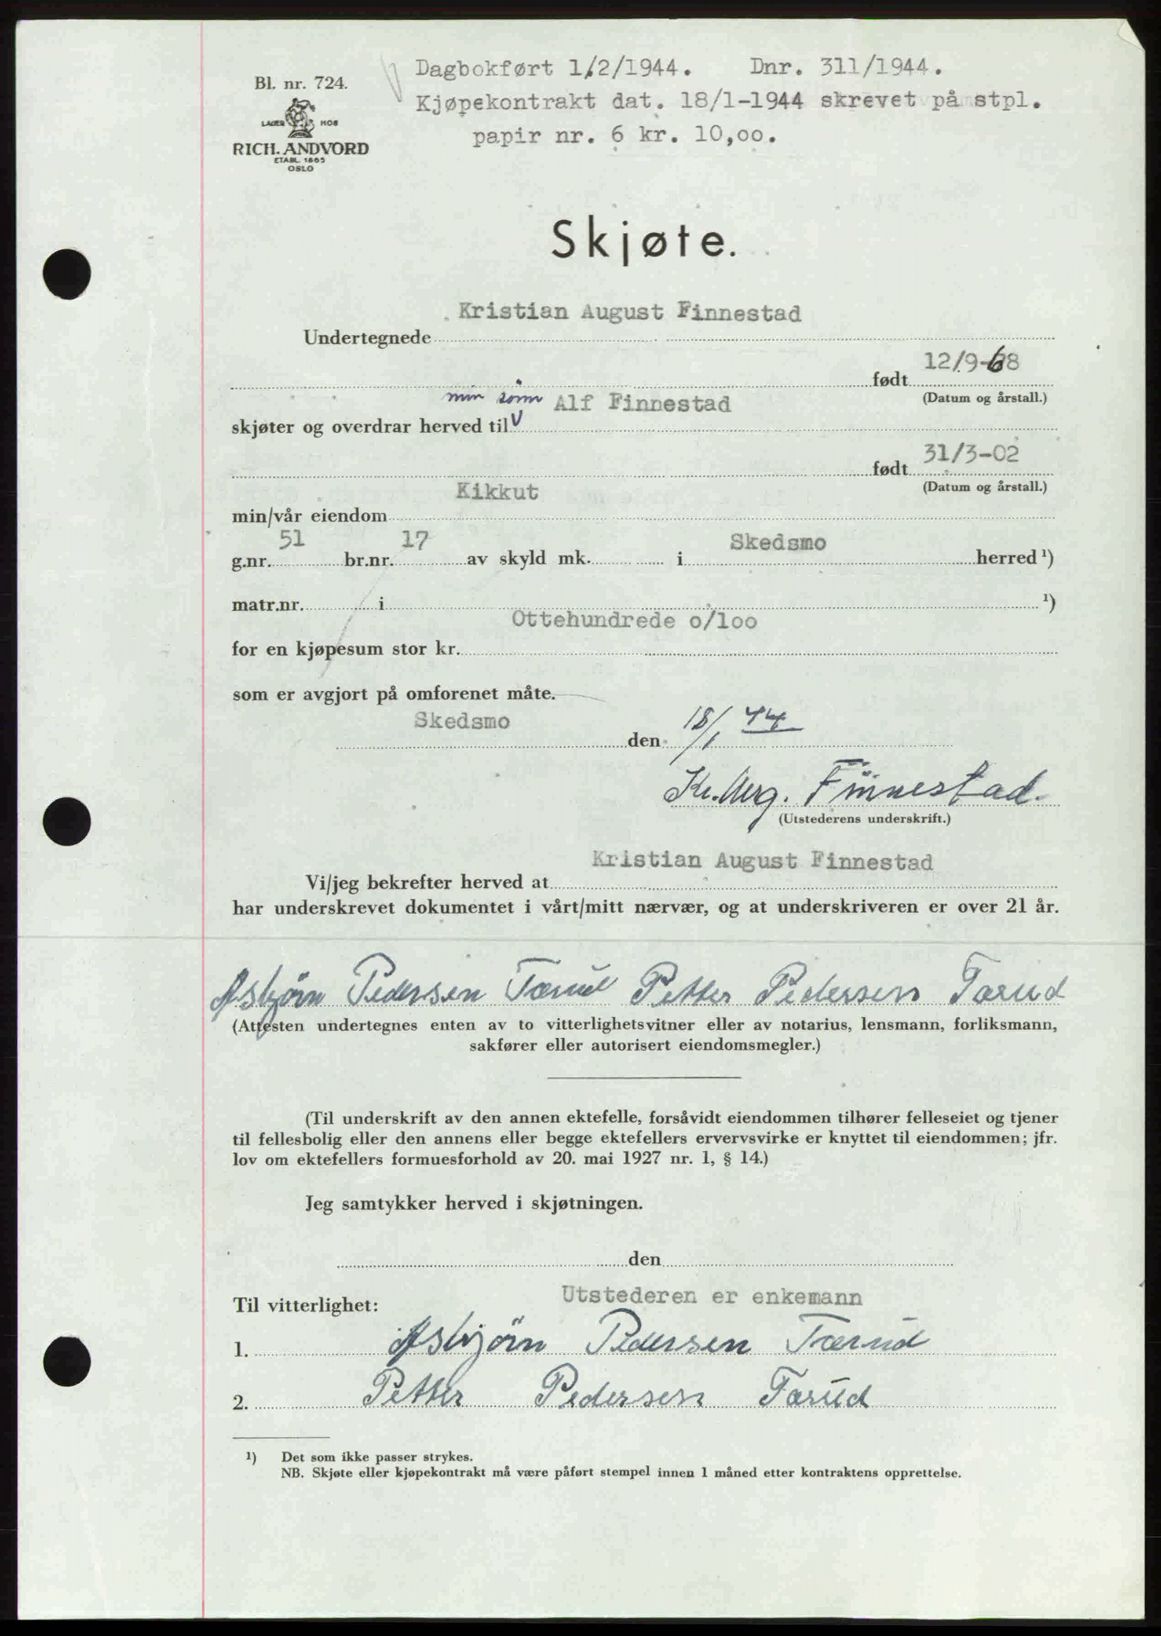 Dagbokført 1/2/1944. Dnr. 311/1944.
Bl. nr. 724.
Kjøpekontrakt dat. 18/1-1944 skrevet på stpl.
LAGER HOS
papir nr. 6 kr. 10,oo.
RICH. ANDVORD
ETABL. 1865
OSLO
Skjøte.
Kristian August Finnestad
Undertegnede
12/9-68
født
(Datum og årstall.)
min sønn Alf Finnestad
skjøter og overdrar herved til V
31/3-02
født
(Datum og årstall.)
Kikkut
min/vår eiendom
51 17 Skedsmo
g.nr. br.nr. av skyld mk. i herred ¹)
matr.nr. i ¹)
Ottehundrede o/loo
for en kjøpesum stor kr.
som er avgjort på omforenet måte.
Skedsmo den 18/1 44
Kr. Aug. Finnestad.
(Utstederens underskrift.)
Kristian August Finnestad
Vi/jeg bekrefter herved at
har underskrevet dokumentet i vårt/mitt nærvær, og at underskriveren er over 21 år.
Asbjörn Pedersen Tærud Petter Pedersen Tærud
(Attesten undertegnes enten av to vitterlighetsvitner eller av notarius, lensmann, forliksmann,
sakfører eller autorisert eiendomsmegler.)
(Til underskrift av den annen ektefelle, forsåvidt eiendommen tilhører felleseiet og tjener
til fellesbolig eller den annens eller begge ektefellers ervervsvirke er knyttet til eiendommen; jfr.
lov om ektefellers formuesforhold av 20. mai 1927 nr. 1, § 14.)
Jeg samtykker herved i skjøtningen.
den
Utstederen er enkemann
Til vitterlighet:
1. Asbjörn Pedersen Tærud
2. Petter Pedersen Tærud
¹) Det som ikke passer strykes.
NB. Skjøte eller kjøpekontrakt må være påført stempel innen 1 måned etter kontraktens opprettelse.